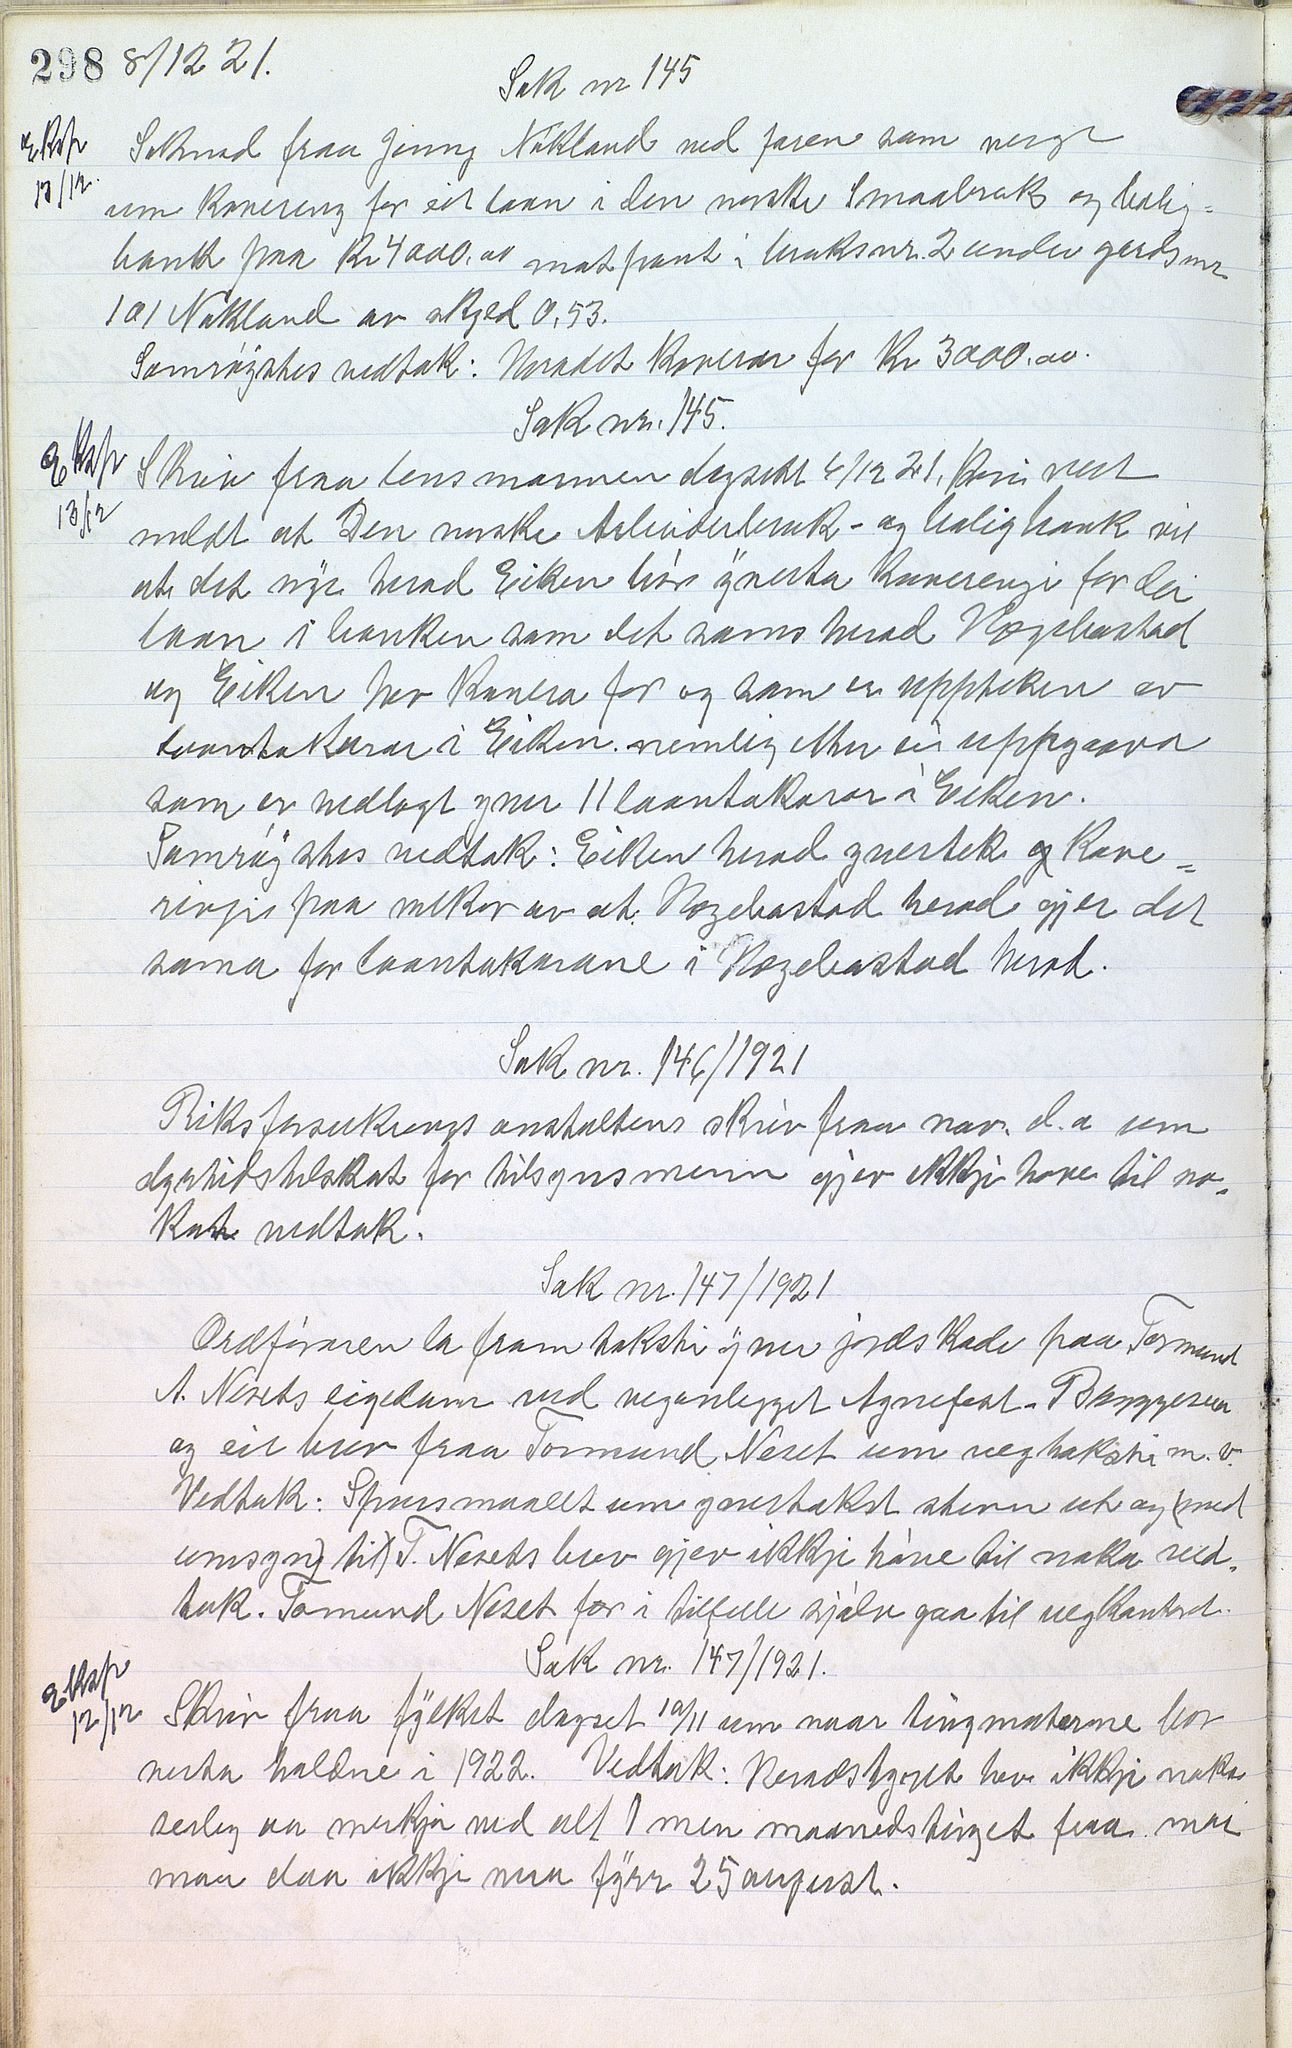 298 8/12 21.
Sak nr 145
Eksp
13/12.
Soknad fraa Jenny Nökland ved faren som verge
um kavering for eit laan i den norske Smaabruk og bolig-
bank paa kr 4000.00 mot pant i bruksnr. 2 under gardsnr
101 Nökland av skyld 0,53.
Samröystes vedtak: Heradet kaverar for kr 3000.00.
Sak nr. 145.
Eksp
13/12
Skriv fraa lensmannen dagsett 6/12 21, kori vert
meldt at Den norske Arbeiderbruk- og boligbank vil
at det nye herad Eiken bör yverta kaverengi for dei
laan i banken som det sams herad Hægebostad
og Eiken hev kavera for og som er uppteken av
laantakarar i Eiken. nemleg etter ei uppgaava
som er vedlagt yver 11 laantakarar i Eiken.
Samröystes vedtak: Eiken herad yvertek og kave-
ringi paa vilkor av at Hægebostad herad gjer det
sama for laantakarane i Hægebostad herad.
Sak nr. 146/1921
Riksforsikrings anstaltens skriv fraa nov. d. a um
dyrtidstilskot for tilsynsmenn gjev ikkje höve til no-
kot vedtak.
Sak nr. 147/1921
Ordföraren la fram taksti yver jordskade paa Tormund
A. Nesets eigedom ved veganlegget Agnefest - Byggeren
og eit brev fraa Tormund Neset um vegtaksti m. v.
Vedtak: Spursmaalet um yvertakst stend ut og (med
umsyn) til) T. Nesets brev gjev ikkje höve til noko ved-
tak. Tormund Neset fær i tilfelle sjölv gaa til vegkontoret.
Sak nr. 147/1921.
Eksp
12/12
Skriv fraa fylket dagset 10/11 um naar tingmoterne bör
verta haldne i 1922. Vedtak: Heradstyret hev ikkje noko
serleg aa merkja ved alt men maanedstinget fraa mai
maa daa ikkje vera fyrr 25 august.